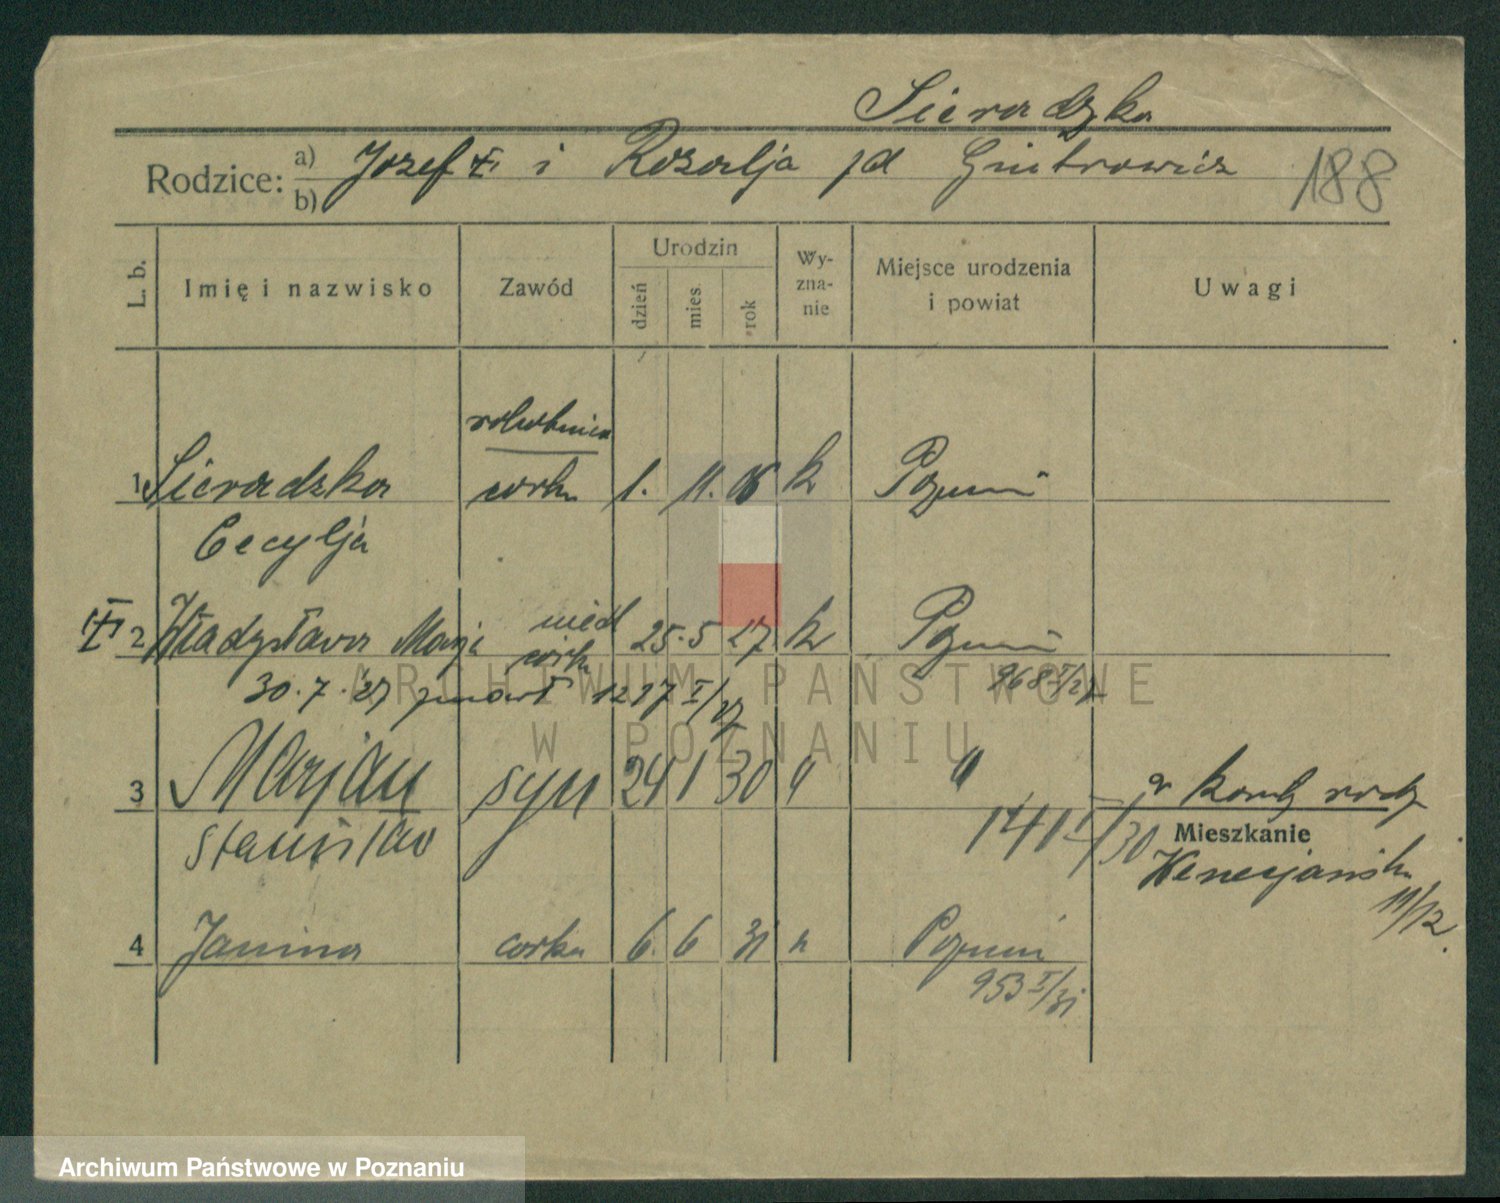 Sieradzka
Rodzice: a) Jozef i Rozalja
b)
188
L. b. Imię i nazwisko Zawód Urodzin dzień mies. rok Wyznanie Miejsce urodzenia i powiat Uwagi
robotnica
1 Sieradzka córka 1. 11. 06 k Poznań
Cecylja
nieśl
2 Władysława Marja córka 25. 5 27 k Poznań
968 I/27
30. 7. 27 zmarł 1217 I/27
3 Marjan syn 24 1 30 " "
Stanisław 141 I/30
Mieszkanie
Wenecjańska
11/12.
4 Janina corka 6. 6 31 " Poznań
953 I/31
ARCHIWUM PAŃSTWOWE
W POZNANIU
Archiwum Państwowe w Poznaniu